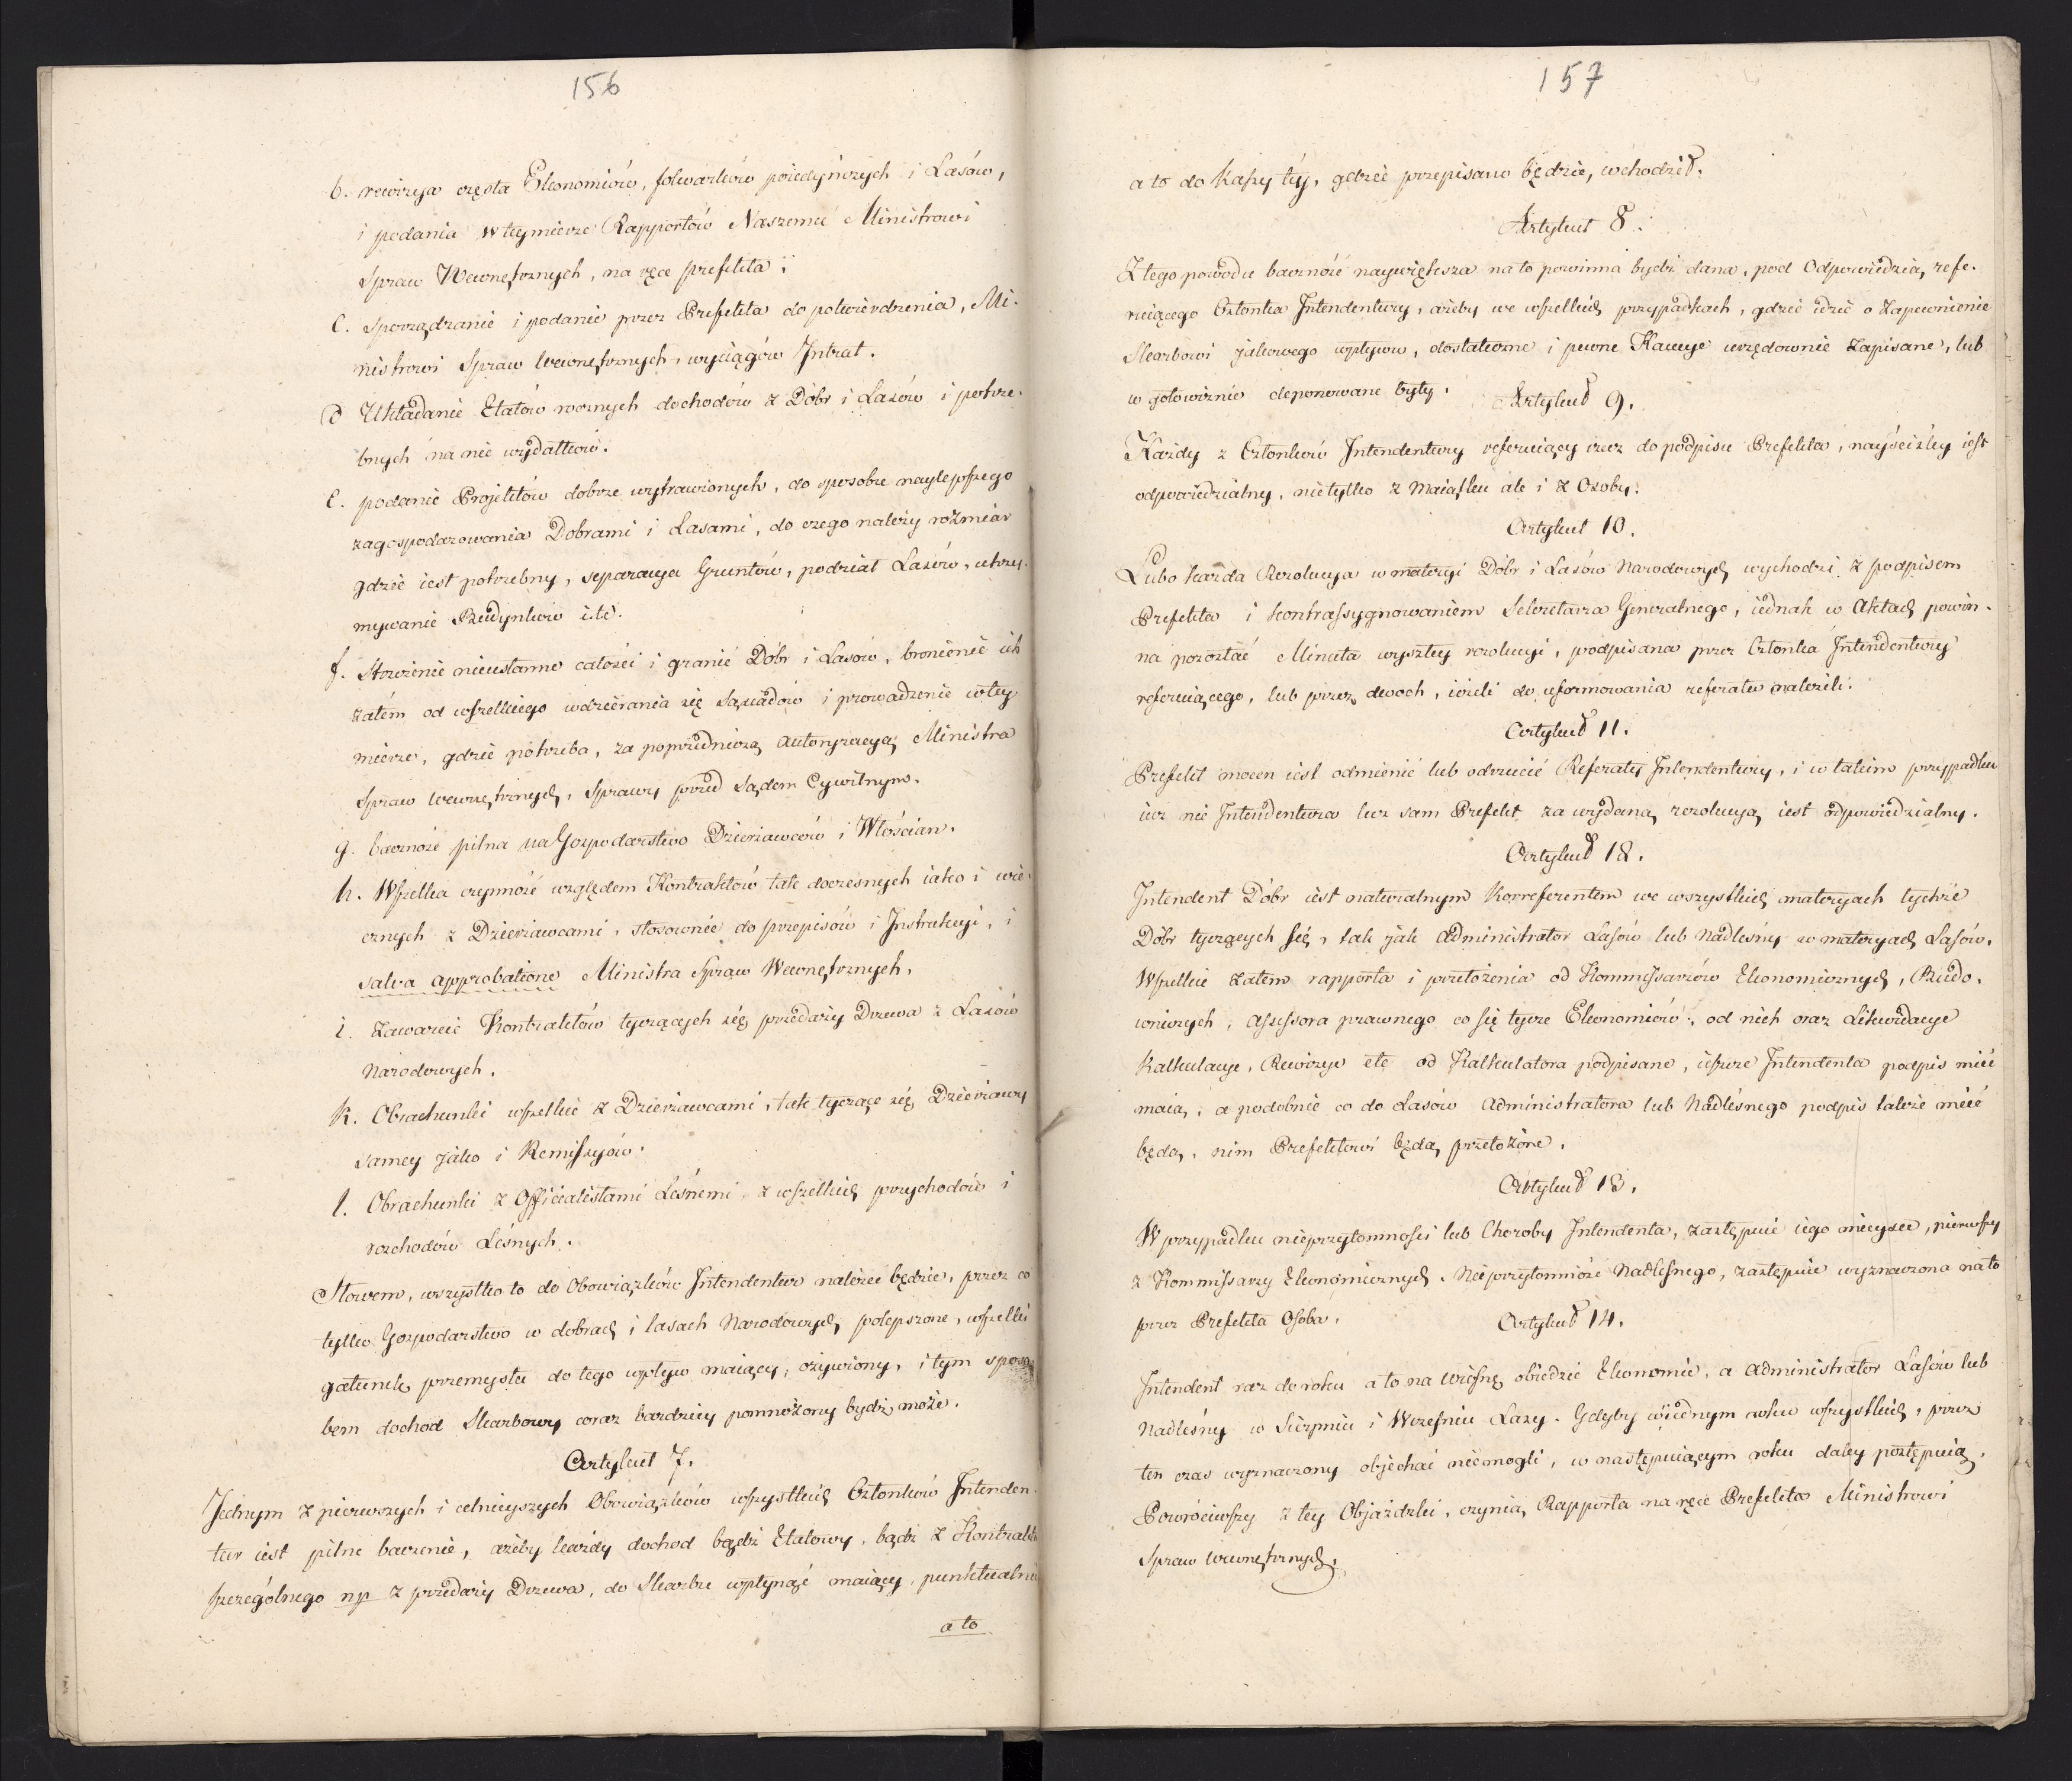 156
b. rewizya częsta Ekonomiów, folwarków poiedyńczych i Lasów,
i podania w teymierze Rapportów Naszemu Ministrowi
Spraw Wewnętrznych, na ręce prefekta;
c. Sporządzanie i podanie przez Prefekta do potwierdzenia, Mi-
nistrowi Spraw wewnętrznych, wyciągów Intrat.
d Układanie Etatów rocznych dochodów z Dóbr i Lasów i potrze-
bnych na nie wydatków.
e. podanie Projektów dobrze wytrawionych, do sposobu naylepszego
zagospodarowania Dobrami i Lasami, do czego należy rozmiar
gdzie iest potrzebny, separacya Gruntów, podział Lasów, utrzy-
mywanie Budynków i.t.d.
f. Strzeżenie nieustanne całości i granic Dóbr i Lasów, bronienie ich
zatém od wszelkiego wdzierania się Sąsiadów i prowadzenie w tey
mierze, gdzie potrzeba, za poprzedniczą autoryzacyą Ministra
Spraw wewnętrznych, Sprawy przed Sądem Cywilnym.
g. baczność pilna na Gospodarstwo Dzierżawców i Włościan.
h. Wszelka czynność względem Kontraktów tak doczesnych iako i wie-
cznych z Dzierżawcami, stosownie do przepisów i Instrukcyi, i
salva approbatione Ministra Spraw Wewnętrznych.
i. Zawarcie Kontraktów tyczących się przedaży Drzewa z Lasów
Narodowych.
k. Obrachunki wszelkie z Dzierżawcami, tak tyczące się Dzierżawy
samey jako i Remissyów.
l. Obrachunki z Officialistami Leśnemi z wszelkich przychodów i
rozchodów Leśnych.
Słowem, wszystko to do Obowiązków Intendentur należeć będzie, przez co
tylko Gospodarstwo w dobrach i lasach Narodowych polepszone, wszelki
gatunek przemysłu do tego wpływ maiący, ożywiony, i tym sposo
bem dochod Skarbowy coraz bardziey pomnożony bydź może.
Artykuł 7.
Jednym z pierwszych i celnieyszych Obowiązków wszystkich Członków Intenden-
tur iest pilne baczenie, ażeby każdy dochod bądź Etatowy, bądź z Kontraktu
szczególnego np z przedaży Drzewa, do Skarbu wpłynąć maiący, punktualnie
a to
157
a to do Kassy téy, gdzie przepisano będzie, wchodził.
Artykuł 8.
Z tego powodu baczność naywiększa na to powinna bydź dana, pod Odpowiedzią refe-
ruiącego Członka Intendentury, ażeby we wszelkich przypadkach, gdzie idzie o Zapewnienie
Skarbowi jakowego wpływu, dostateczne i pewne Kaucye urzędownie zapisane, lub
w gotowiznie deponowane były.
Artykuł 9.
Każdy z Członków Intendentury referuiący rzecz do podpisu Prefekta, nayściśley iest
odpowiedzialny, nietylko z Maiątku ale i z Osoby.
Artykuł 10.
Lubo każda Rezolucya w materyi Dóbr i Lasów Narodowych wychodzi z podpisem
Prefekta i kontrassygnowaniem Sekretarza Generalnego, iednak w Aktach powin-
na pozostać Minuta wyszłey rezolucyi, podpisana przez Członka Intendentury
referuiącego, lub przez dwóch, ieżeli do uformowania referatu należeli.
Artykuł 11.
Prefekt mocen iest odmienić lub odrzucić Referaty Intendentury, i w takim przypadku
iuż nie Intendentura lecz sam Prefekt za wydaną rezolucyą iest odpowiedzialny.
Artykuł 12.
Intendent Dóbr iest naturalnym Korreferentem we wszystkich materyach tychże
Dóbr tyczących się, tak jak Administrator Lasów lub Nadleśny w materyach Lasów.
Wszelkie zatem rapporta i przełożenia od Kommissarzów Ekonomicznych, Budo-
wniczych, Assessora prawnego co się tycze Ekonomiów, od nich oraz Likwidacye
Kalkulacye, Rewizye etc od Kalkulatora podpisane, ieszcze Intendenta podpis mieć
maią, a podobnie co do Lasów Administratora lub Nadleśnego podpis także mieć
będą, nim Prefektowi będą przełożone.
Artykuł 13.
W przypadku nieprzytomności lub Choroby Intendenta, zastępuie iego mieysce, pierwszy
z Kommissarzy Ekonomicznych. Nieprzytomność Nadleśnego, zastępuie wyznaczona na to
przez Prefekta Osoba.
Artykuł 14.
Intendent raz do roku a to na wiosnę obiedzie Ekonomie, a Administrator Lasów lub
Nadleśny w Sierpniu i Wrześniu Lasy. Gdyby w iednym roku wszystkich, przez
ten czas wyznaczony objechać niemogli, w następuiącym roku daley postępuią.
Powróciwszy z tey Objażdżki, czynią Rapporta na ręce Prefekta Ministrowi
Spraw wewnętrznych.